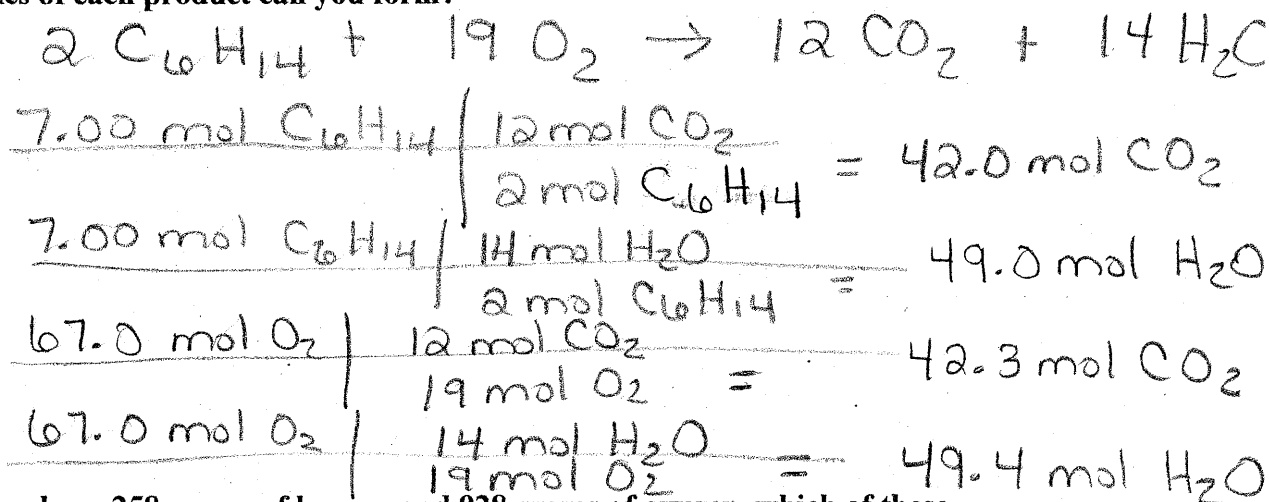 of each product can you form?
2 C₆H₁₄ + 19 O₂ → 12 CO₂ + 14 H₂C
7.00 mol C₆H₁₄ | 12 mol CO₂
2 mol C₆H₁₄ = 42.0 mol CO₂
7.00 mol C₆H₁₄ | 14 mol H₂O
2 mol C₆H₁₄ = 49.0 mol H₂O
67.0 mol O₂ | 12 mol CO₂
19 mol O₂ = 42.3 mol CO₂
67.0 mol O₂ | 14 mol H₂O
19 mol O₂ = 49.4 mol H₂O